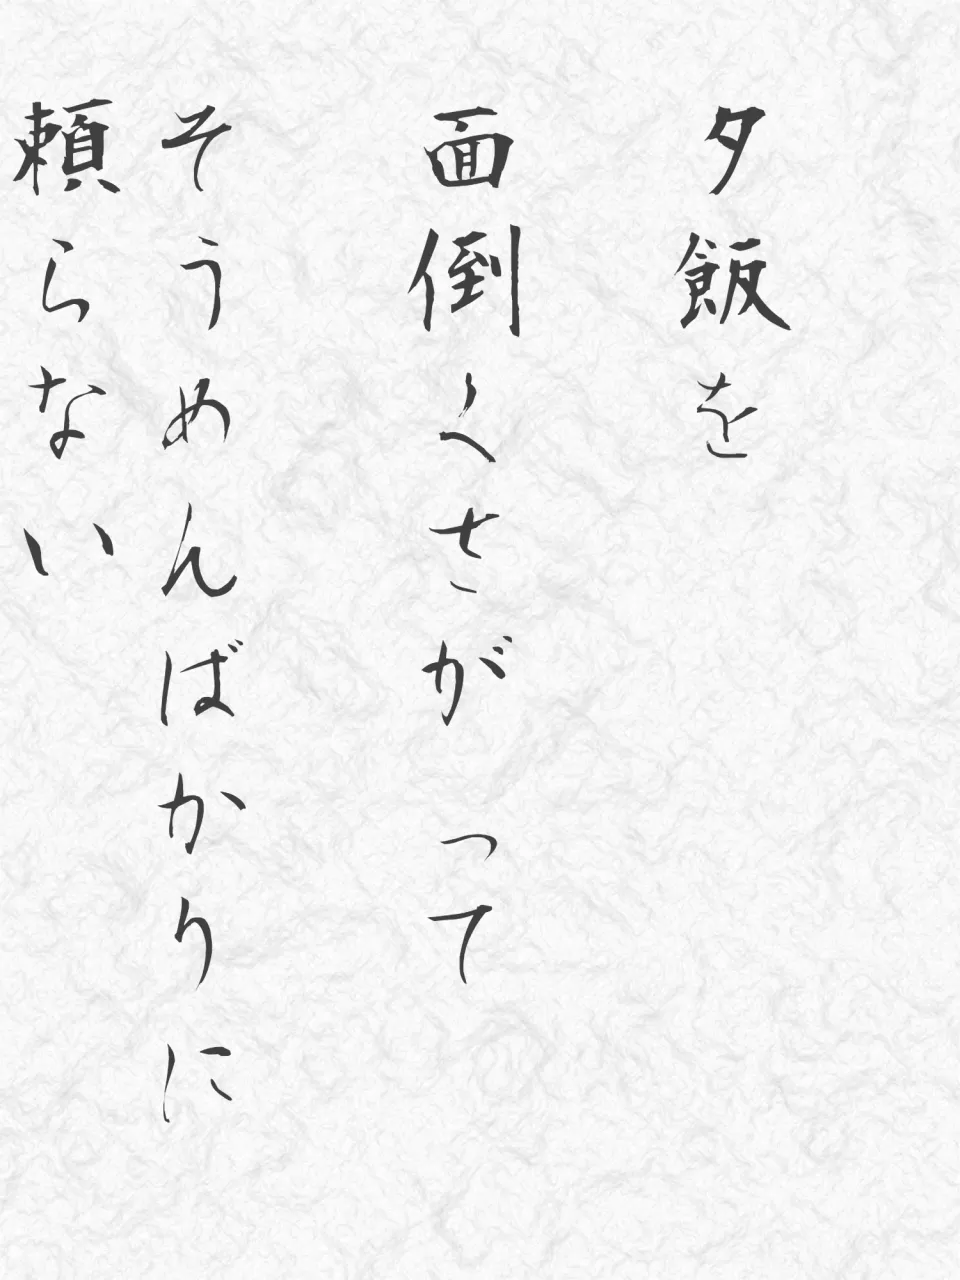 夕飯を
面倒くさがって
そうめんばかりに
頼らない